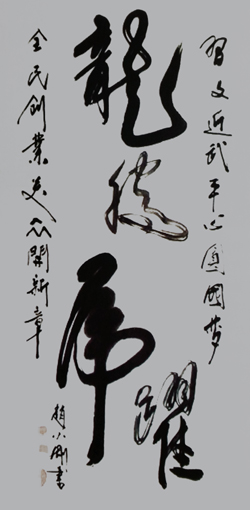 習文近武平心圓國梦
龍騰虎躍
全民創業众開新章
小剛書